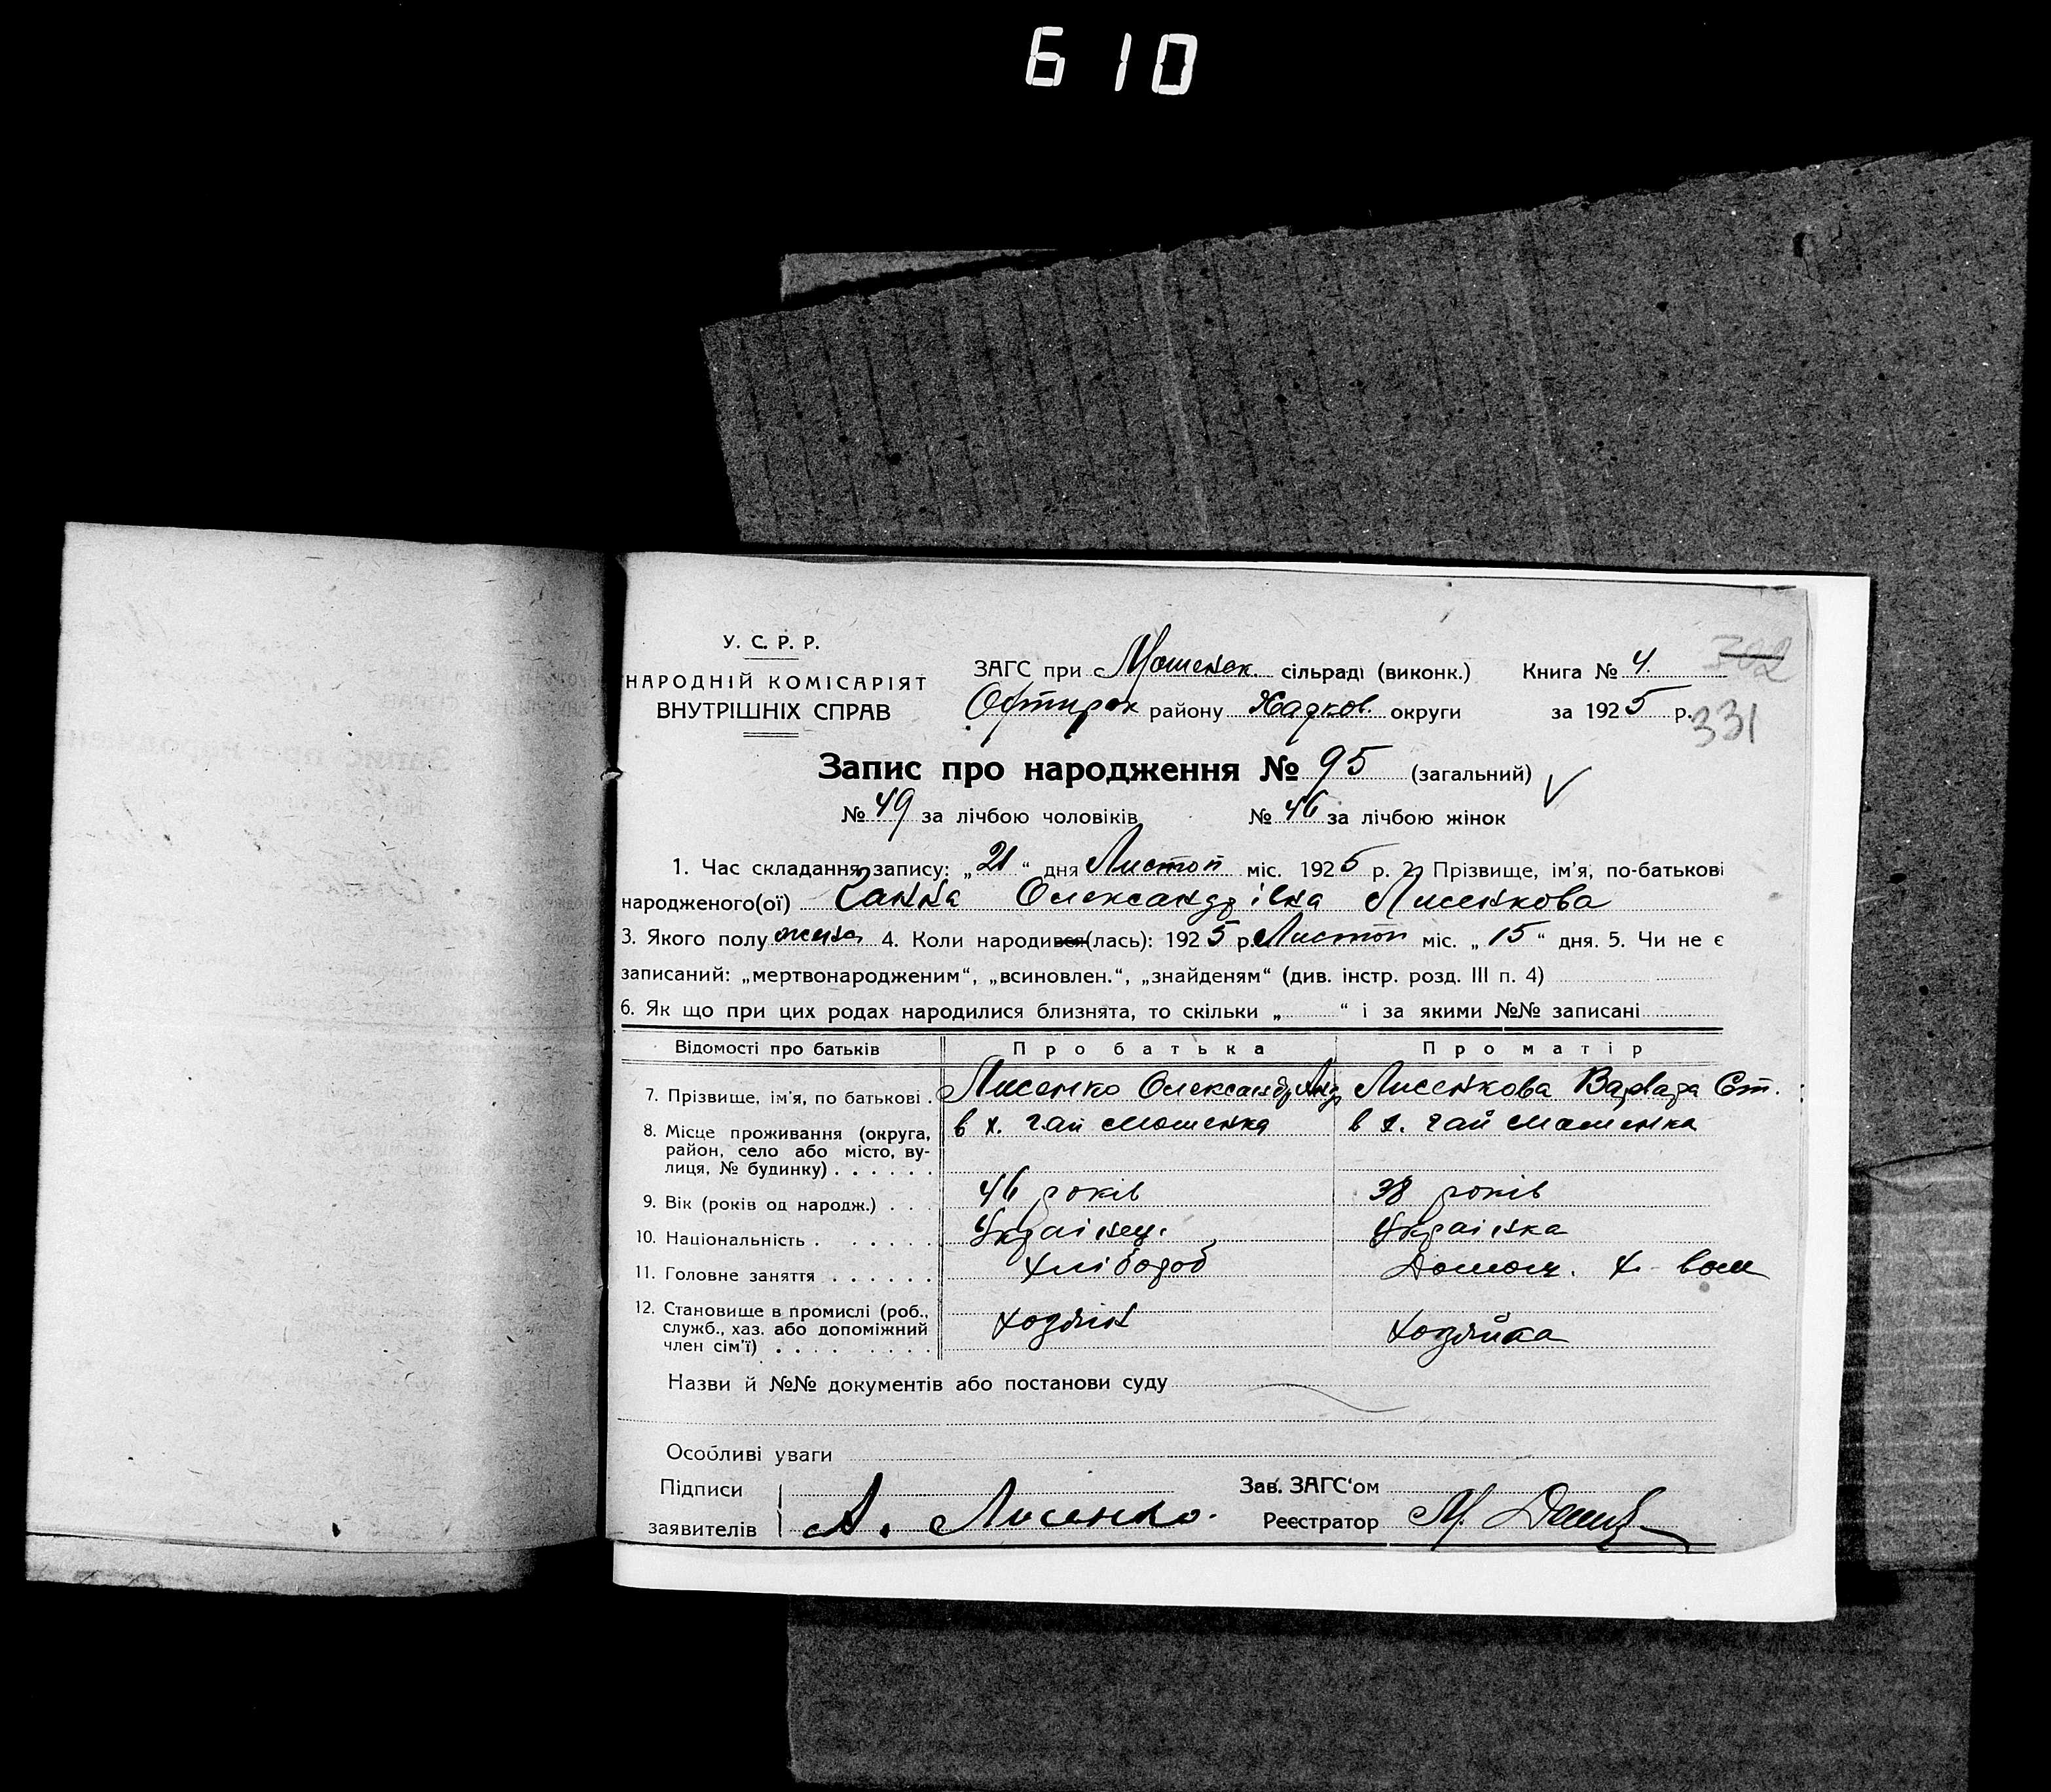 610
У. С. Р. Р.
НАРОДНІЙ КОМІСАРІЯТ
ВНУТРІШНІХ СПРАВ
ЗАГС при с Мошенск. сільраді (виконк.) Книга № 4.
Охтирск району Харков. округи за 1925 р.
302
331
Запис про народження № 95 (загальний)
№ 49 за лічбою чоловіків № 46 за лічбою жінок
1. Час складання запису: „21“ дня Листоп міс. 1925 р. 2. Прізвище, ім'я, по-батькові
народженого(ої) Ганна Олександрівна Лисенкова
3. Якого полу жіноч 4. Коли народився(лась): 1925 р. Листоп міс. „15“ дня. 5. Чи не є
записаний: „мертвонародженим“, „всиновлен.“, „знайденям“ (див. інстр. розд. III п. 4)
6. Як що при цих родах народилися близнята, то скільки „ “ і за якими №№ записані
Відомості про батьків Про батька Про матір
7. Прізвище, ім'я, по батькові . Лисенко Олександр Анд Лисенкова Варвара Ст.
8. Місце проживання (округа, район, село або місто, вулиця, № будинку) . . . . . . в х. Гай Мошенка в х. Гай Мошенка
9. Вік (років од народж.) . . . 46 років 38 років
10. Національність . . . . . . . Українец. Українка
11. Головне заняття . . . . . . Хлібороб Домош. х-вом
12. Становище в промислі (роб., служб., хаз. або допоміжний член сім'ї) . . . . . . . . Хозяїн Хозяйка
Назви й №№ документів або постанови суду
Особливі уваги
Підписи Зав. ЗАГС'ом
заявителів А. Лисенко. Реєстратор М.